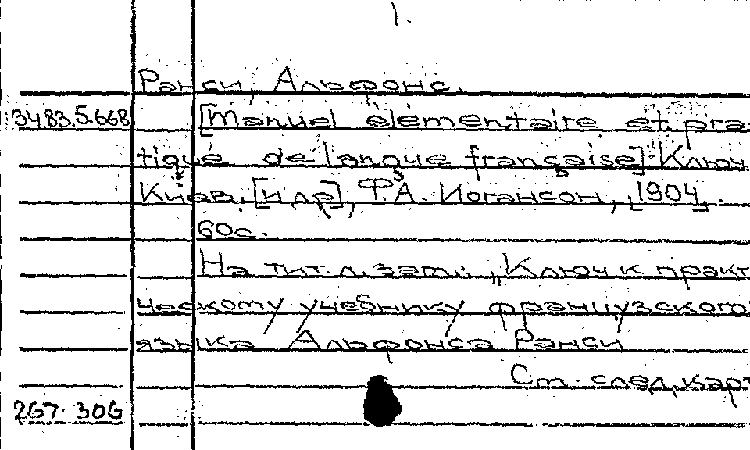 1.
Ранси, Альфонс.
3483.5.668 [Manuel élémentaire et pra-
tique de langue française] Ключ
Киев, [и др], Ф.А. Иогансон, [1904].
60с.
На тит. л. загл.: „Ключ к практ
ческому учебнику французского
языка Альфонса Ранси
См. след. карт
267.306